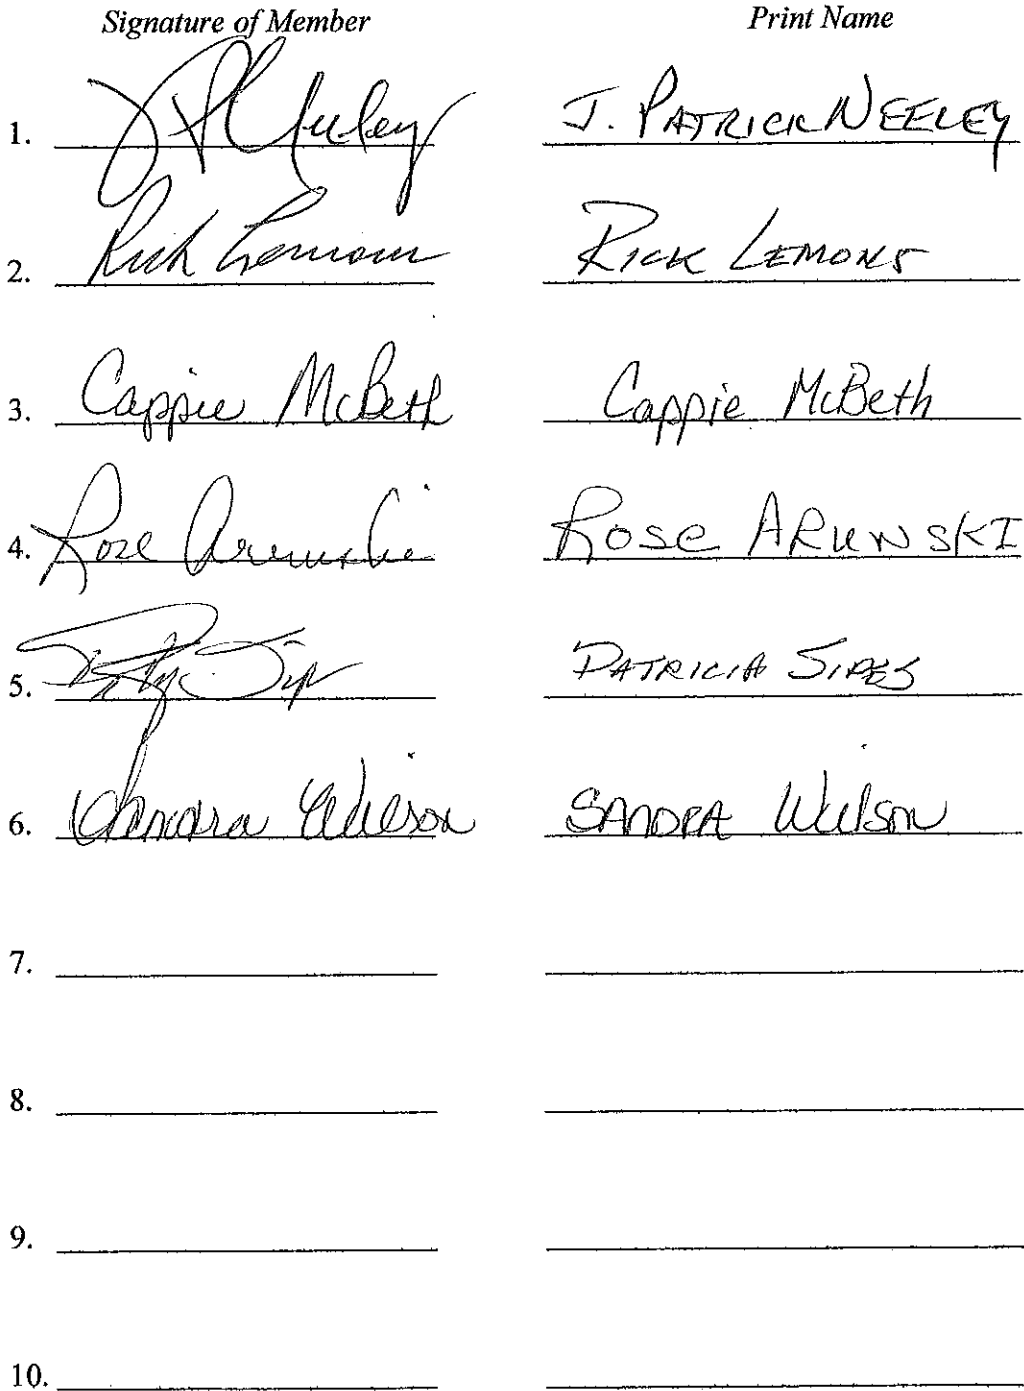 Signature of Member Print Name
1. J P Neeley J. PATRICK NEELEY
2. Rick Lemons RICK LEMONS
3. Cappie McBeth Cappie McBeth
4. Rose Arunski ROSE ARUNSKI
5. PATRICIA SIPES
6. Sandra Wilson SANDRA Wilson
7.
8.
9.
10.